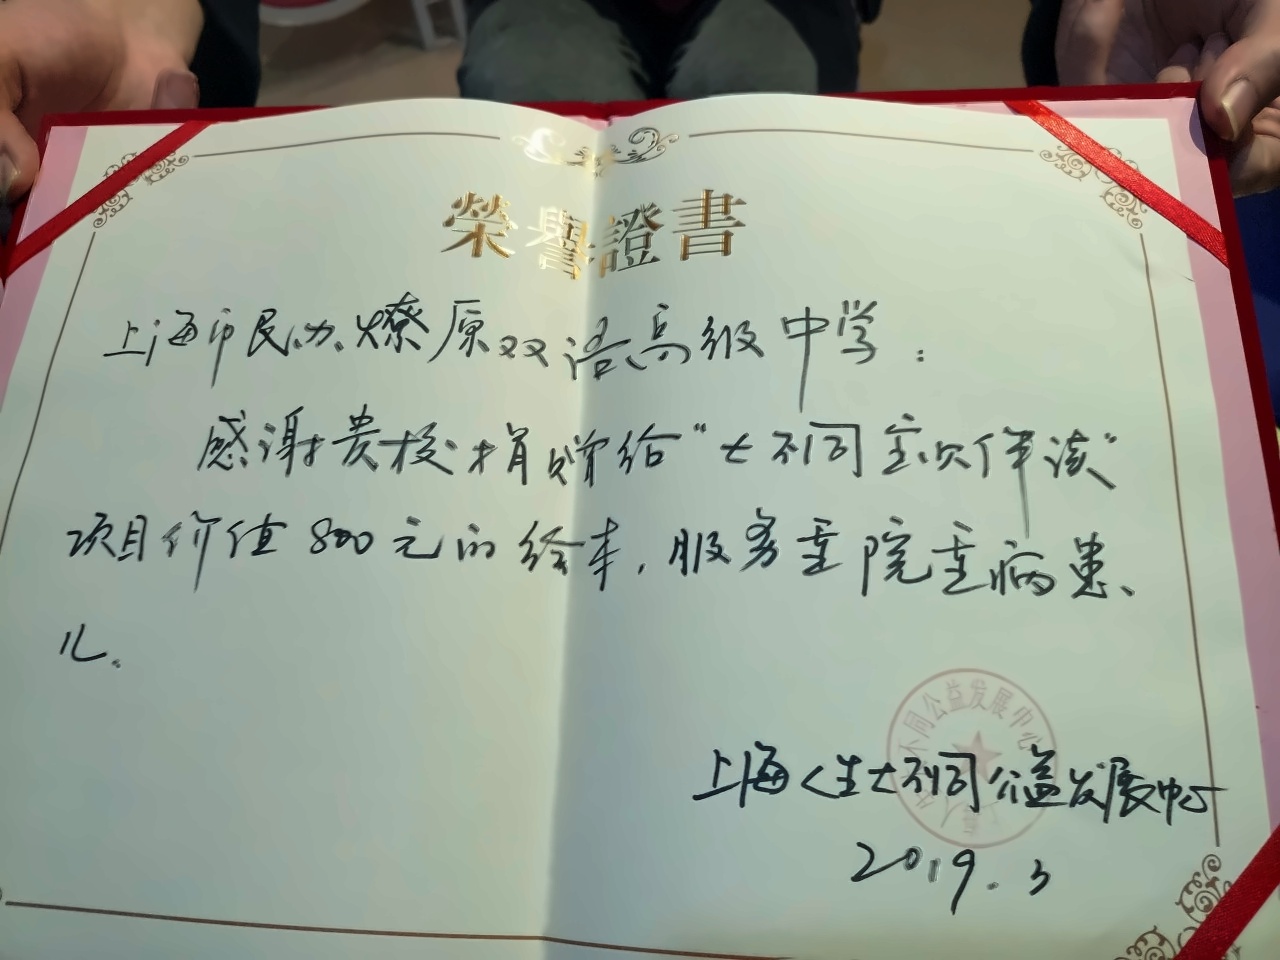 榮譽證書
上海市民办燎原双语高级中学：
感谢贵校捐赠给“大不同童欢伴读”
项目价值800元的绘本，服务重院重病患
儿。
不同公益发展中心
上海人生大不同公益发展中心
2019.3